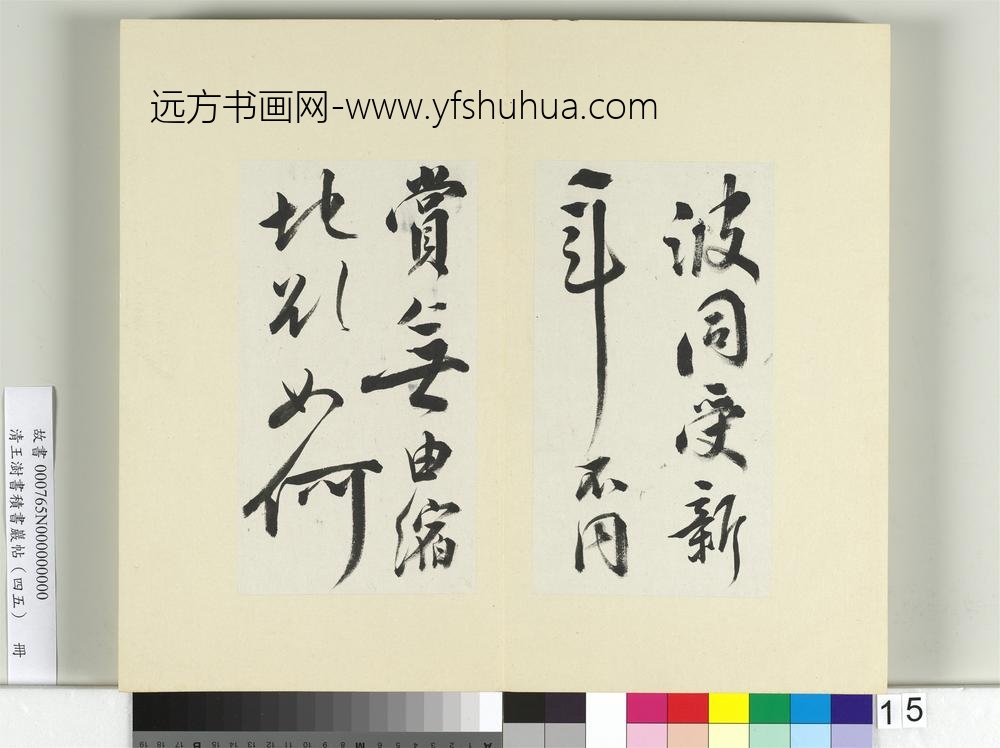 远方书画网-www.yfshuhua.com
波同受新
年不同
賞無由縮
地欲如何
故書 000765N000000000
清王澍書積書巖帖(四五) 冊
15